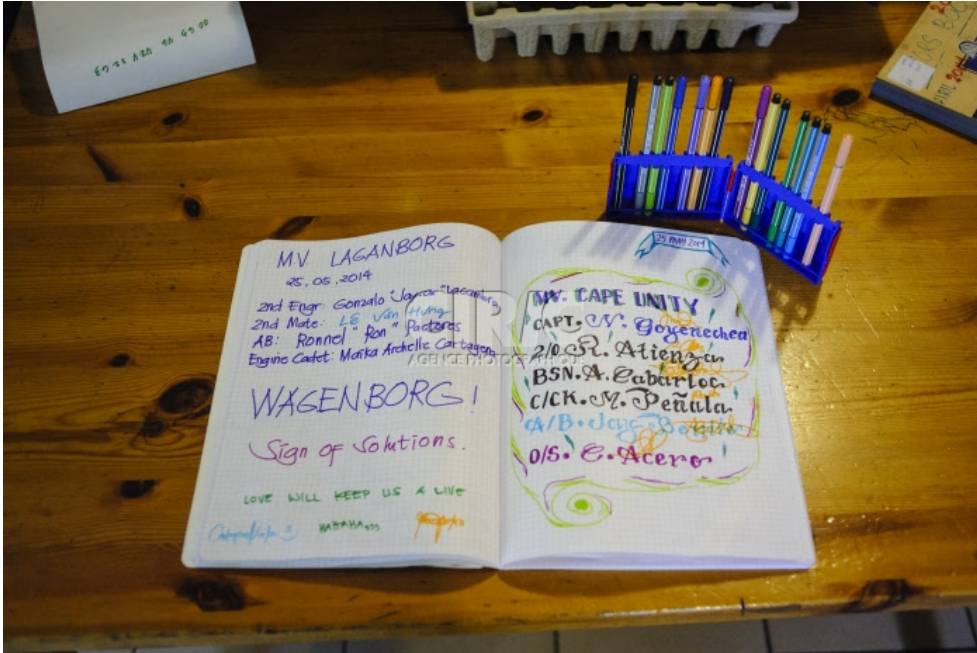 MV LAGANBORG
25.05.2014
2nd Engr: Gonzalo "Jaycar" Lagamayo
2nd Mate: LÊ Văn Hưng
AB: Ronnel "Ron" Pactores
Engine Cadet: Maika Archelle Cartagena
WAGENBORG!
Sign of Solutions.
LOVE WILL KEEP US A LIVE
HAHAHA
25 MAY 2014
MV. CAPE UNITY
CAPT. N. Goyenechea
2/O R. Atienza
BSN. A. Cabarloc
C/CK. M. Peñala
A/B. Jay
O/S. C. Acero
AGENCE PHOTOGRAPHIQUE